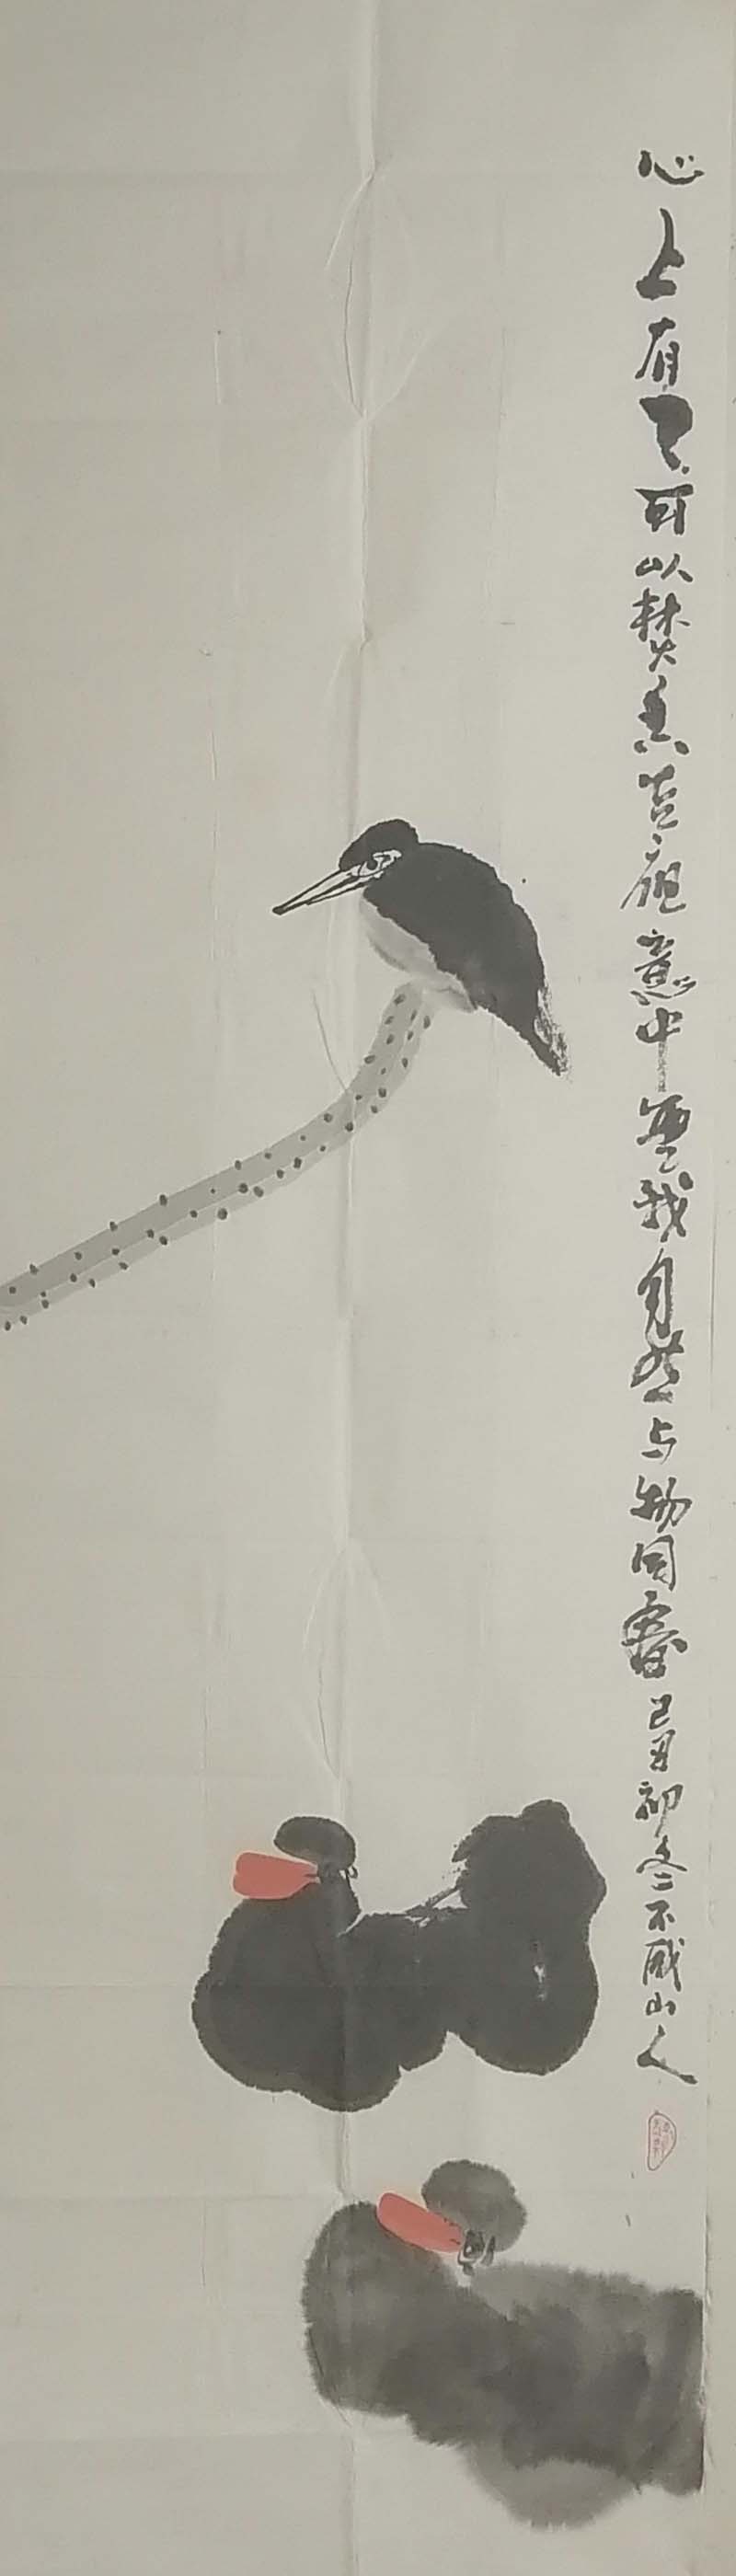 心上有天可以焚香告祖意中無我自然与物同春己丑初冬不山人